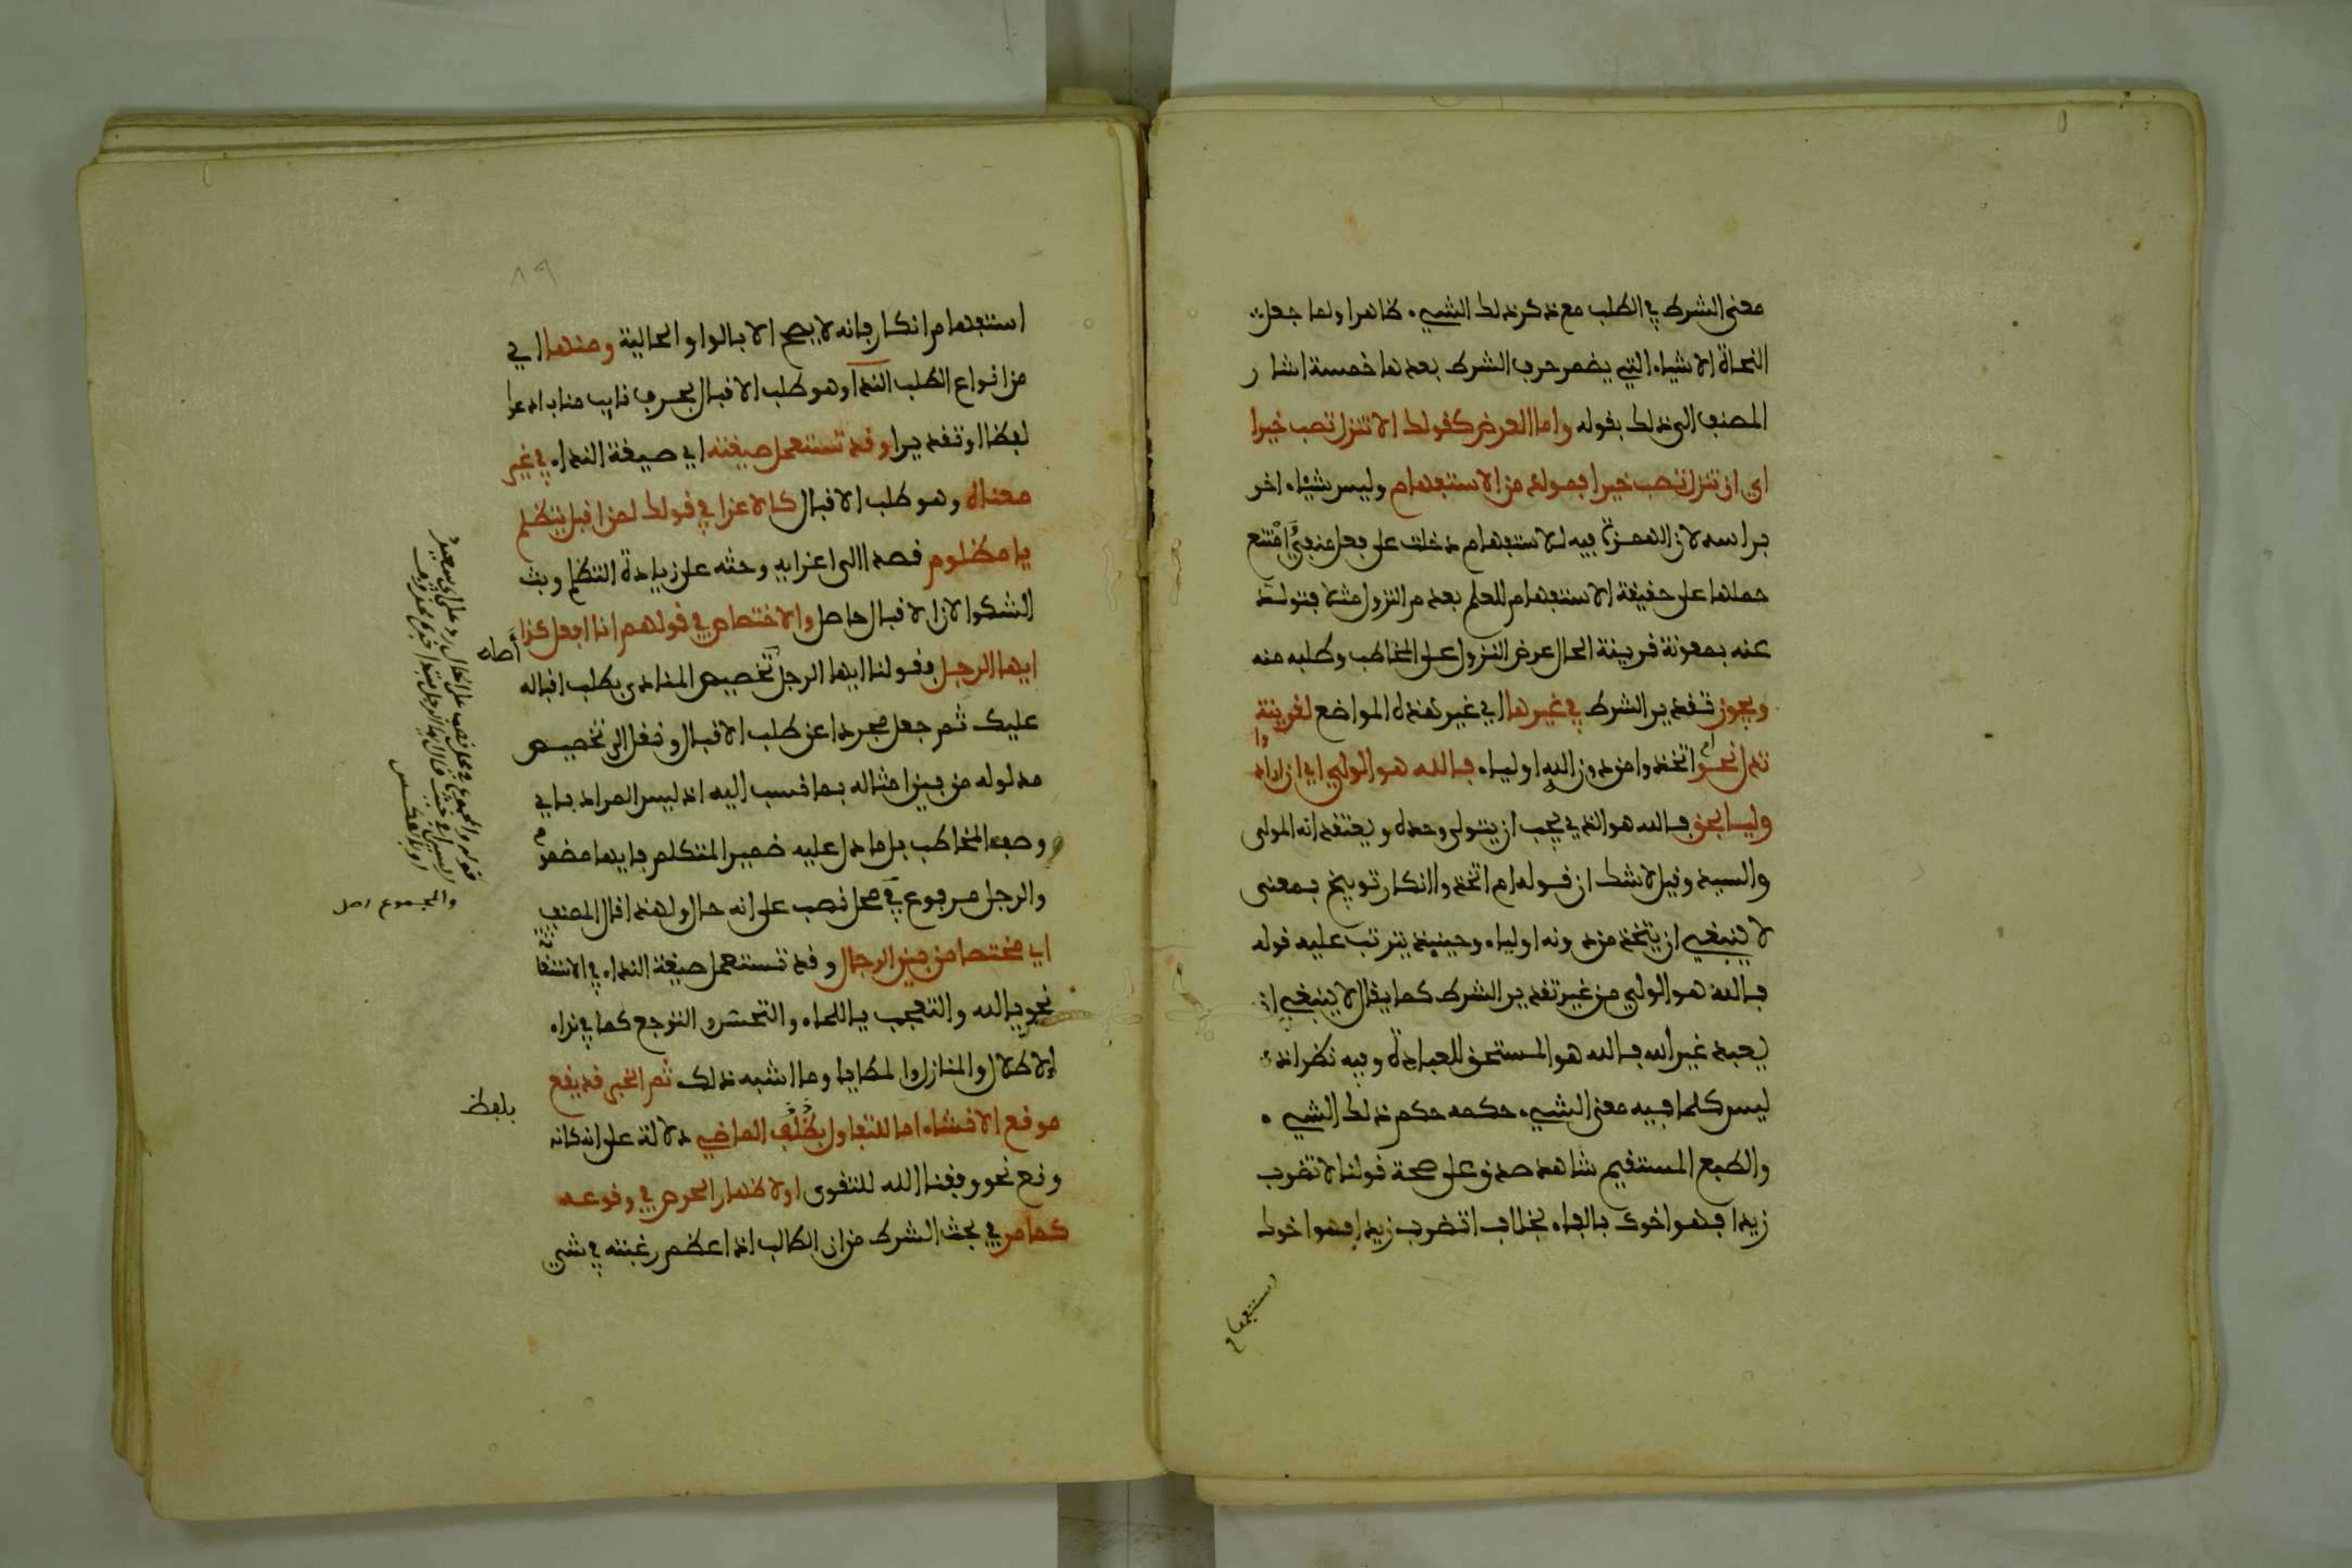 معنى الشرط في الطلب مع ذكر ذلك الشيء ظاهرا ولما جعل
النحاة الاشياء التي يضمر حرف الشرط بعدها خمسة اشار
المصنف الى ذلك بقوله واما العرض كقولك الا تنزل تصب خيرا
اي ان تنزل تصب خيرا فمولد من الاستفهام وليس شياء اخر
براسه لان الهمزة فيه للاستفهام دخلت على فعل منفي امتنع
حملها على حقيقة الاستفهام للعلم بعدم النزول مثلا فتولد
عنه بمعونة قرينة الحال عرض النزول على المخاطب وطلبه منه
ويجوز تقدير الشرط في غيرها اي غير هذه المواضع لقرينة
تدل نحو ام اتخذوا من دون الله اولياء فالله هو الولي اي ان ارادوا
وليا بحق فالله هو الذي يجب ان يتولى وحده ويعتقد انه المولى
والسيد وقيل لا شك ان قوله ام اتخذوا انكار توبيخ بمعنى
لا ينبغي ان يتخذ من دونه اولياء وحينيذ يترتب عليه قوله
فالله هو الولي من غير تقدير الشرط كما يقال لا ينبغي ان
يعبد غير الله فالله هو المستحق للعبادة وفيه نظر اذ
ليس كلما فيه معنى الشيء حكمه حكم ذلك الشيء
والطبع المستقيم شاهد صدق على صحة قولنا لا تضرب
زيدا فهو اخوك بالفاء بخلاف اتضرب زيدا فهو اخوك
استفهام
٨٩
استفهام انكار فانه لا يصح الا بالواو الحالية ومنها اي
من انواع الطلب الندا وهو طلب الاقبال بحرف نايب مناب ادعوا
لفظا او تقديرا وقد تستعمل صيغته اي صيغة النداء في غير
معناه وهو طلب الاقبال كالاغرا في قولك لمن اقبل يتظلم
يا مظلوم قصدا الى اغرايه وحثه على زيادة التظلم وبث
الشكوا لان الاقبال حاصل والاختصاص في قولهم انا افعل كذا
ايها الرجل فقولنا ايها الرجل تخصيص المنادى بطلب اقباله
اصله
عليك ثم جعل مجردا عن طلب الاقبال ونقل الى تخصيص
مدلوله من بين امثاله بما نسب اليه اذ ليس المراد باي
ووصفه المخاطب بل ما دل عليه ضمير المتكلم فايها مضموم
والرجل مرفوع في محل نصب على انه حال ولهذا قال المصنف
اي مختصا من بين الرجال وقد تستعمل صيغة النداء في الاستغاثة
نحو يا لله والتعجب يا للماء والتحسر والتوجع كما في نداء
الاطلال والمنازل والمطايا وما اشبه ذلك ثم الخبر قد يقع
موقع الانشاء اما للتفاول بلفظ الماضي دلالة على انه كانه
بلفظ
وقع نحو وفقنا الله للتقوى او لاظهار الحرص في وقوعه
كما مر في بحث الشرط من ان الطالب اذا عظم رغبته في شي
قوله والمجموع في محل نصب على الحال
او بالعكس
والمجموع اصل